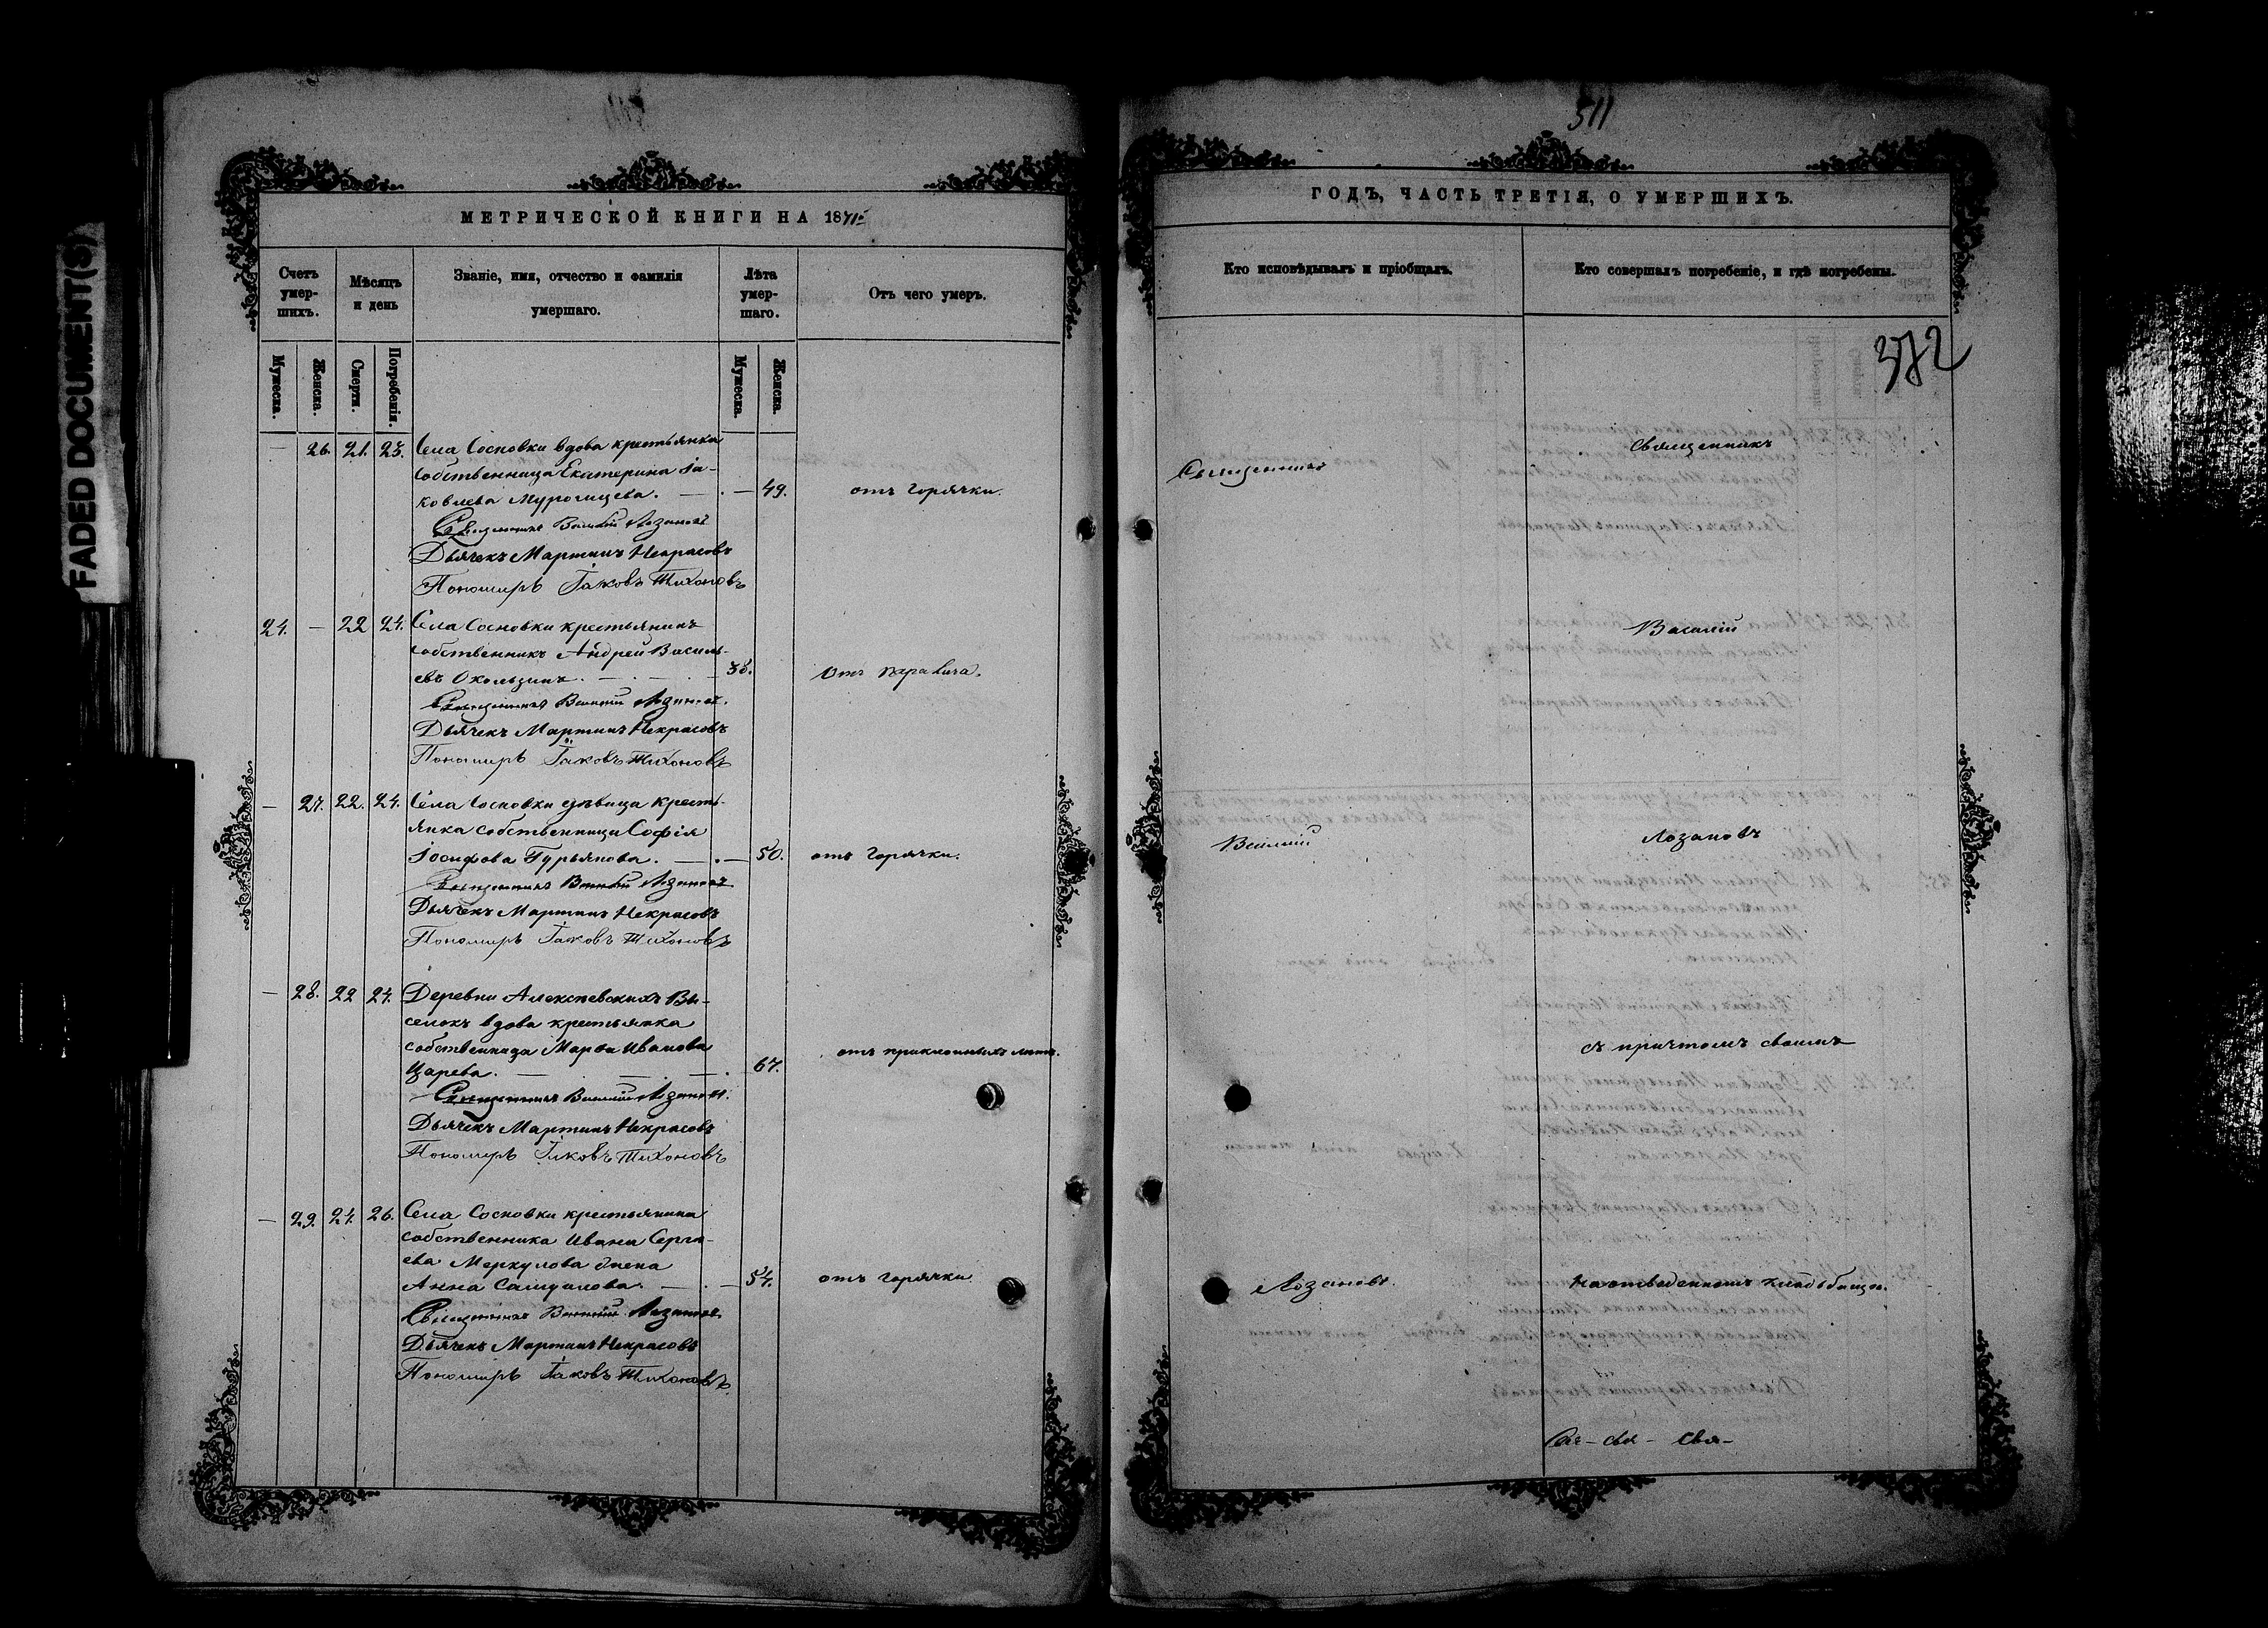 FADED DOCUMENT(S)
511
МЕТРИЧЕСКОЙ КНИГИ НА 1871й
ГОДЪ, ЧАСТЬ ТРЕТІЯ, О УМЕРШИХЪ.
Счетъ умер-шихъ.
Мѣсяцъ и день
Званіе, имя, отчество и фамилія умершаго.
Лѣта умер-шаго.
Отъ чего умеръ.
Кто исповѣдывалъ и пріобщалъ.
Кто совершалъ погребеніе, и гдѣ погребены.
Мужеска.
Женска.
Смерти.
Погребенія.
Мужеска.
Женска.
— 26. 21. 23. Села Сосновки вдова крестьянка
собственница Екатерина Іа-
ковлева — 49. отъ горячки.
Священникъ Василій Лозановъ
Дьячекъ Мартинъ Некрасовъ
Пономарь Іаковъ Тихоновъ
24. — 22 24. Села Сосновки крестьянинъ
собственникъ Андрей Василь-
евъ Окользинъ. — 38. отъ паралича.
Священникъ Василій Лозановъ.
Дьячекъ Мартинъ Некрасовъ
Пономарь Іаковъ Тихоновъ
— 27. 22. 24. Села Сосновки дѣвица кресть-
янка собственница Софія
Іосифова Гурьянова. — 50. отъ горячки.
Священникъ Василій Лозановъ
Дьячекъ Мартинъ Некрасовъ
Пономарь Іаковъ Тихоновъ
— 28. 22 24. Деревни Алексѣевскихъ Вы-
селокъ вдова крестьянка
собственница Марѳа Иванова
Царева. — 67. отъ преклонныхъ лѣтъ.
Священникъ Василій Лозановъ.
Дьячекъ Мартинъ Некрасовъ
Пономарь Іаковъ Тихоновъ
— 29. 24. 26. Села Сосновки крестьянина
собственника Ивана Серге-
ева Меркулова жена
Анна Самуилова. — 54. отъ горячки
Священникъ Василій Лозановъ.
Дьячекъ Мартинъ Некрасовъ
Пономарь Іаковъ Тихоновъ
372
Священникъ
Василій
Лозановъ.
Священникъ
Василій
Лозановъ
съ причтомъ своимъ
на отведенномъ кладбищѣ.